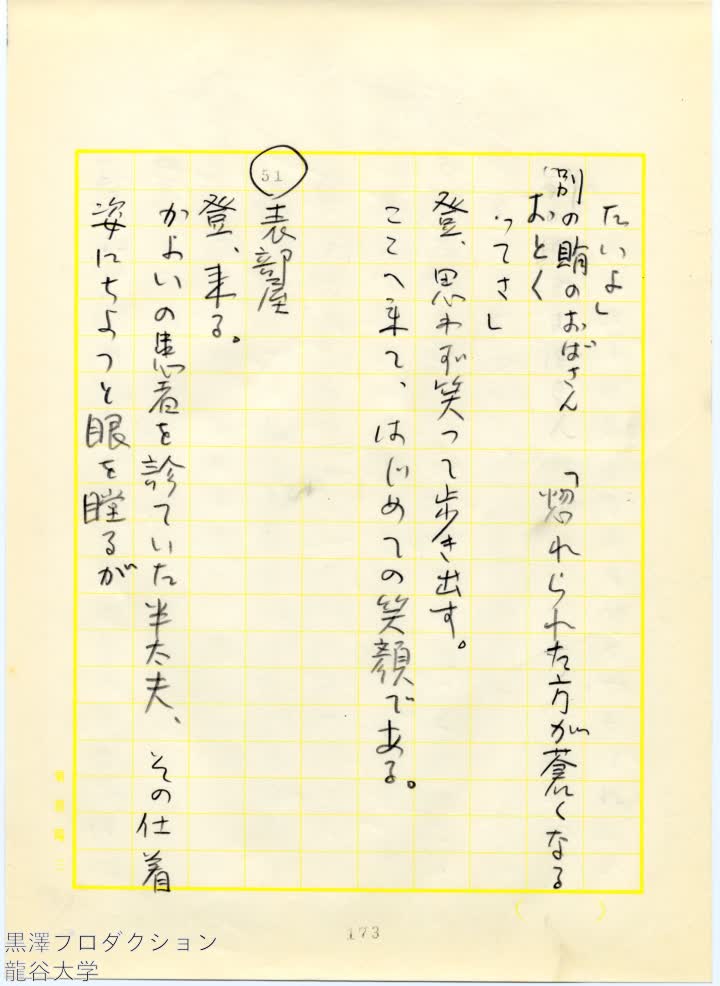 たいよ」
別の賄のおばさん 「惚れられた方が蒼くなる
おとく
ってさ」
登、思わず笑って歩き出す。
ここへ来て、はじめての笑顔である。
51
表部屋
登、来る。
かよいの患者を診ていた半太夫、その仕着
姿にちょっと眼を瞠るが
173
黒澤プロダクション
龍谷大学